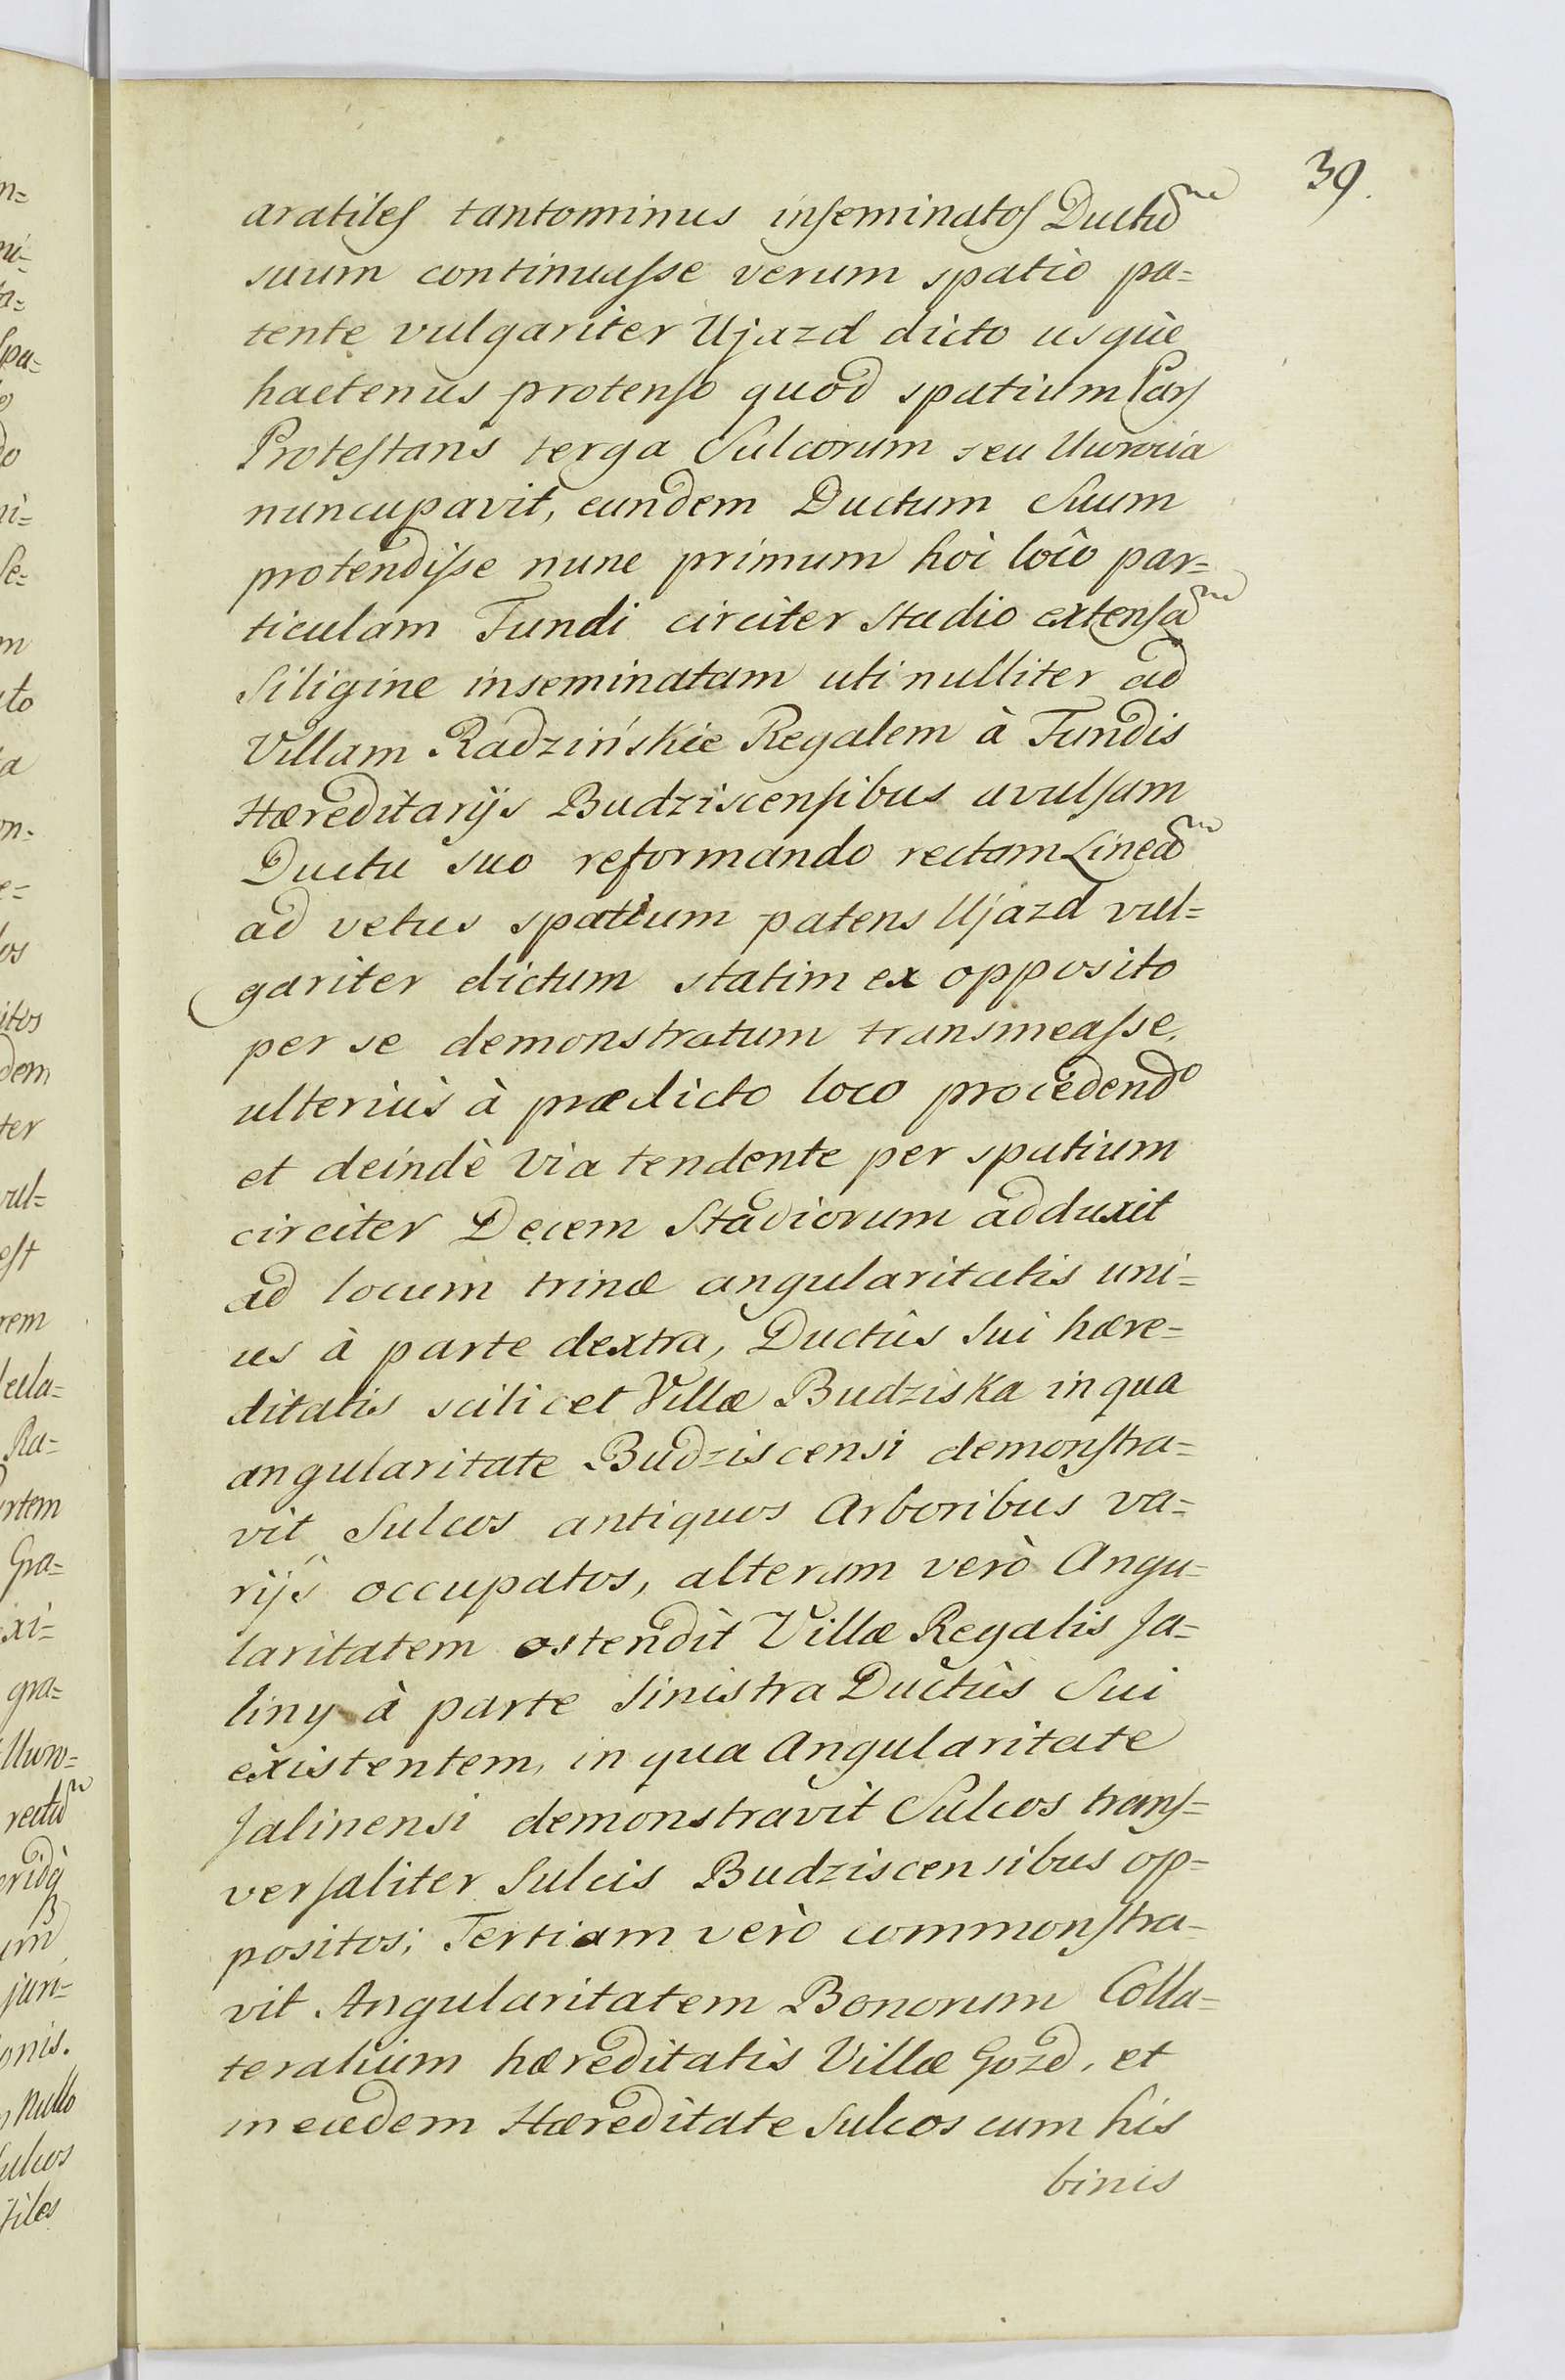 39.
aratiles tantominus inseminatos Ductũ
suum continuasse verum spatio pa=
tente vulgariter Ujazd dicto usqùe
hactenus protenso quod spatium Pars
Protestans terga Sulcorum seu Uwrocia
nuncupavit, eundem Ductum Suum
protendisse nunc primum hoì loco par=
ticulam Fundi circiter Stadio extensã
Siligine inseminatam uti nulliter ad
Villam Radzińskie Regalem à Fundis
Hæreditarijs Budziscensibus avulsam
Ductu suo reformando rectam Lineã
ad vetus spatium patens Ujazd vul=
gariter dictum statim ex opposito
per se demonstratum transmeasse,
ulteriùs à prædicto loco procedendo
et deindè via tendente per spatium
circiter Decem Stadiorum adduxit
ad locum trinæ angularitatis uni=
us à parte dextra, Ductûs Sui hære=
ditatis scilicet Villæ Budziska in qua
angularitate Budziscensi demonstra=
vit Sulcos antiquos Arboribus va=
rijs occupatos, alteram verò Angu=
laritatem ostendit Villæ Regalis Ja=
liny à parte Sinistra Ductûs Sui
existentem, in qua Angularitate
Jalinensi demonstravit Sulcos trans=
versaliter Sulcis Budziscensibus op=
positos; Tertiam verò commonstra=
vit Angularitatem Bonorum Colla=
teralium hæreditatis Villæ Gozd, et
in eadem Hæreditate Sulcos cum his
binis